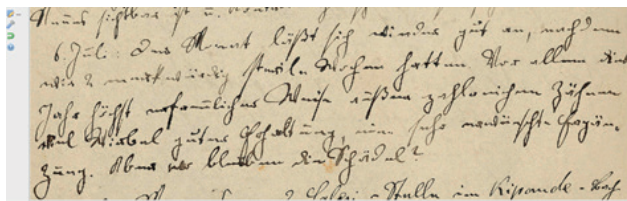 Raumes sichtbar ist u.
6. Juli: Der Monat läßt sich wieder gut an, nachdem
wir 2 merkwürdig sterile Wochen hatten. Vor allem dies
Jahr höchst erfreulicher Weise außer zahlreichen Zähnen
viel Wirbel guter Erhaltung, eine sehr erwünschte Ergän-
zung. Aber wo bleiben die Schädel?
2 Saurier-Stelle im Kipande-Bach